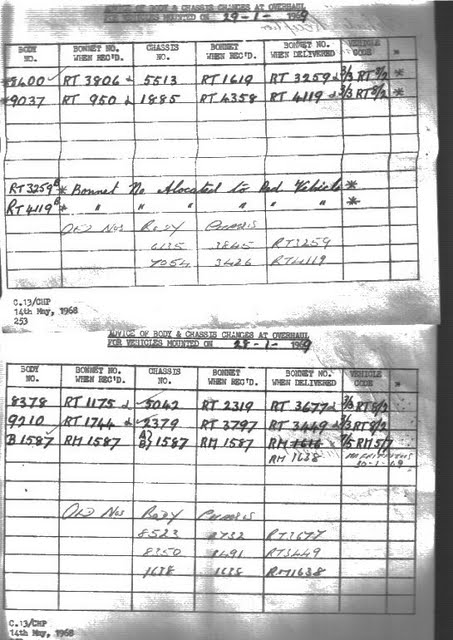 ADVICE OF BODY & CHASSIS CHANGES AT OVERHAUL
FOR VEHICLES MOUNTED ON 29-1- 1969
BODY NO. BONNET NO. WHEN REC'D. CHASSIS NO. BONNET WHEN REC'D. BONNET NO. WHEN DELIVERED VEHICLE CODE
*8400 RT 3806 5513 RT 1619 RT 3259 2/3 RT 8/2 *
*9037 RT 950 1885 RT 4358 RT 4119 2/3 RT 8/2 *
RT 3259 * Bonnet No Alocated to Red Vehicle *
RT 4119 * " " " " " " *
OLD NOS BODY CHASSIS
6135 3845 RT3259
7054 3426 RT4119
C.13/CHP
14th May, 1968
253
ADVICE OF BODY & CHASSIS CHANGES AT OVERHAUL
FOR VEHICLES MOUNTED ON 28-1- 1969
BODY NO. BONNET NO. WHEN REC'D. CHASSIS NO. BONNET WHEN REC'D. BONNET NO. WHEN DELIVERED VEHICLE CODE
8378 RT 1175 5042 RT 2319 RT 3677 2/3 RT 8/2
9210 RT 1744 2379 RT 3797 RT 3449 2/3 RT 8/2
B 1587 RM 1587 A) B) 1587 RM 1587 RM 1616 7/5 RM 5/7
RM 1638
30-1-69
OLD NOS BODY CHASSIS
8523 RT3677
8350 RT3449
1638 1638 RM1638
C.13/CHP
14th May, 1968